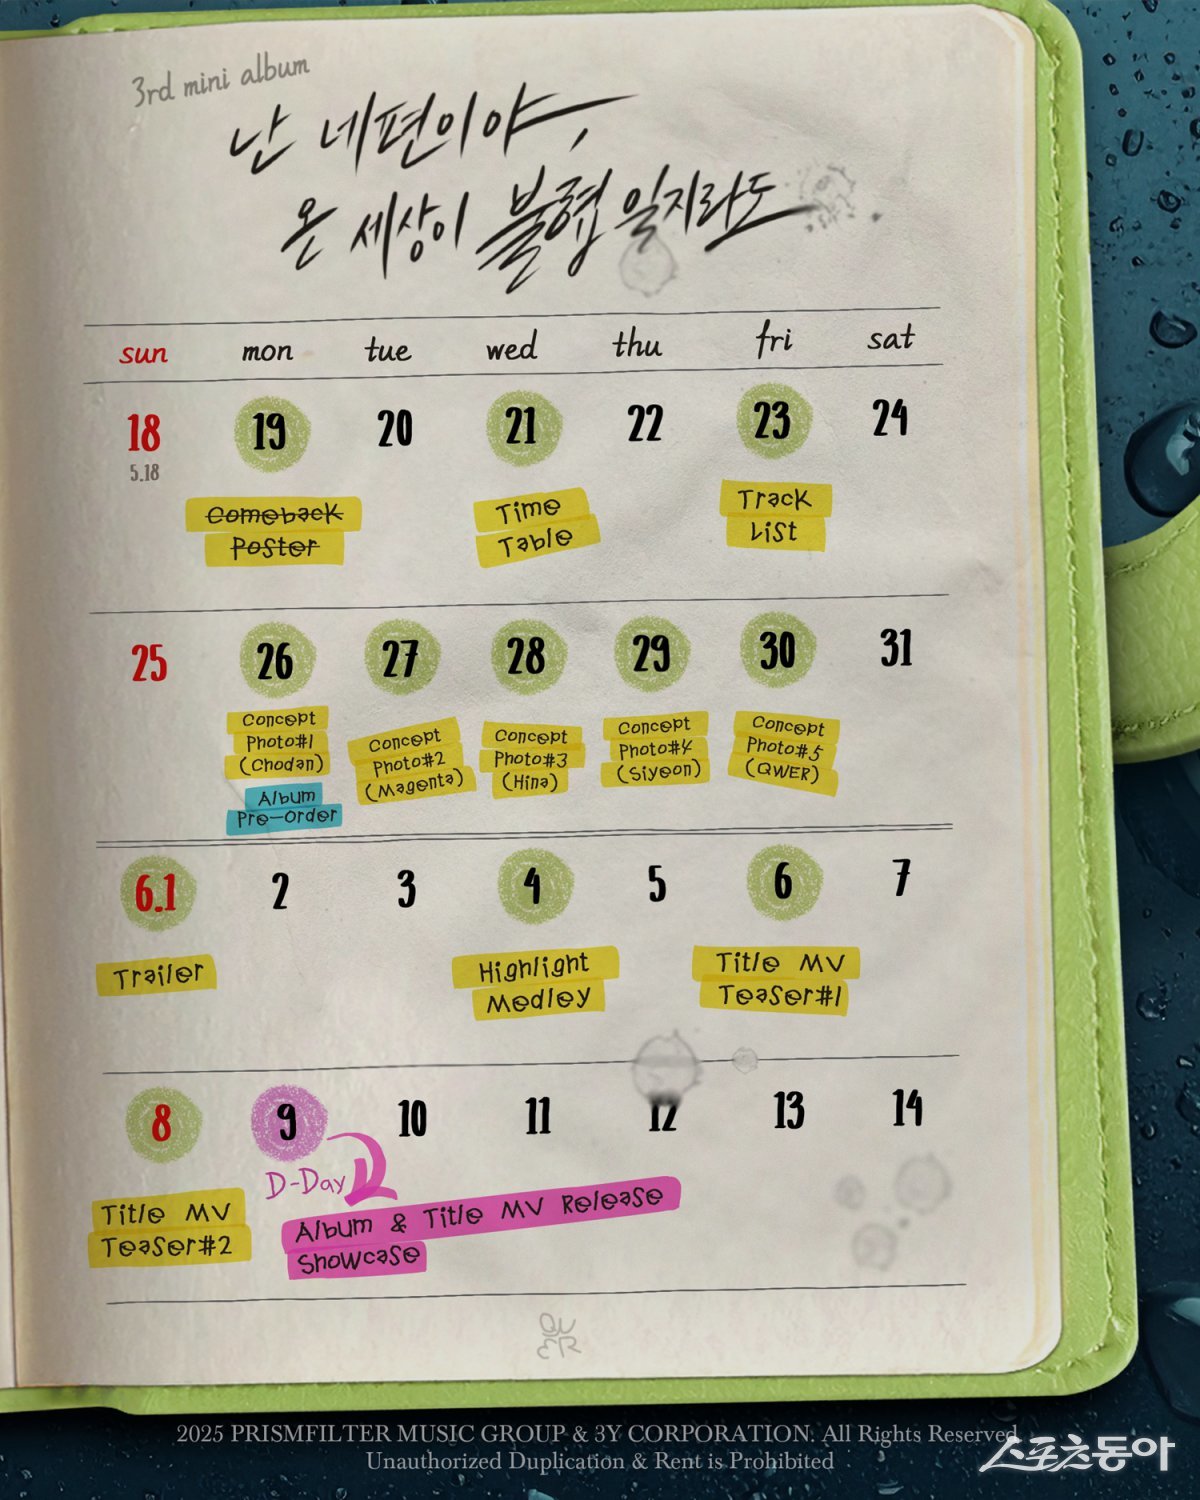 3rd mini album
난 네편이야,
온 세상이 불협일지라도
sun mon tue wed thu fri sat
18 19 20 21 22 23 24
5.18
Comeback Poster
Time Table
Track List
25 26 27 28 29 30 31
Concept Photo#1 (Chodan)
Album Pre-Order
Concept Photo#2 (Magenta)
Concept Photo#3 (Hina)
Concept Photo#4 (Siyeon)
Concept Photo#5 (QWER)
6.1 2 3 4 5 6 7
Trailer
Highlight Medley
Title MV Teaser#1
8 9 10 11 12 13 14
D-Day
Title MV Teaser#2
Album & Title MV Release
Showcase
QWER
2025 PRISMFILTER MUSIC GROUP & 3Y CORPORATION. All Rights Reserved
Unauthorized Duplication & Rent is Prohibited
스포츠동아